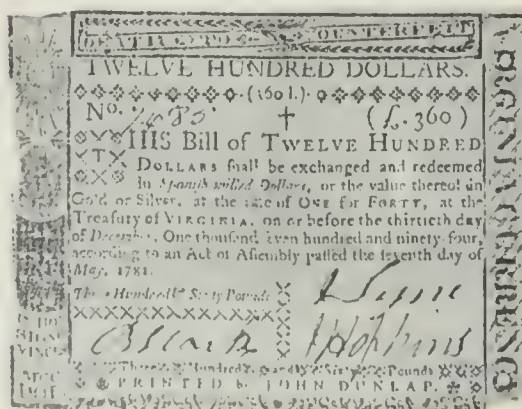 DEATH TO COUNTERFEIT
TWELVE HUNDRED DOLLARS.
(360 l.)
No. (£. 360)
THIS Bill of TWELVE HUNDRED
DOLLARS ſhall be exchanged and redeemed
in Spaniſh milled Dollars, or the value thereof in
Gold or Silver, at the rate of ONE for FORTY, at the
Treaſury of VIRGINIA, on or before the thirtieth day
of December, One thouſand ſeven hundred and ninety-four,
according to an Act of Aſſembly paſſed the ſeventh day of
May, 1781.
Three Hundred & Sixty Pounds
J Hopkins
Three Hundred and Sixty Pounds
PRINTED by JOHN DUNLAP.
VIRGINIA CURRENCY